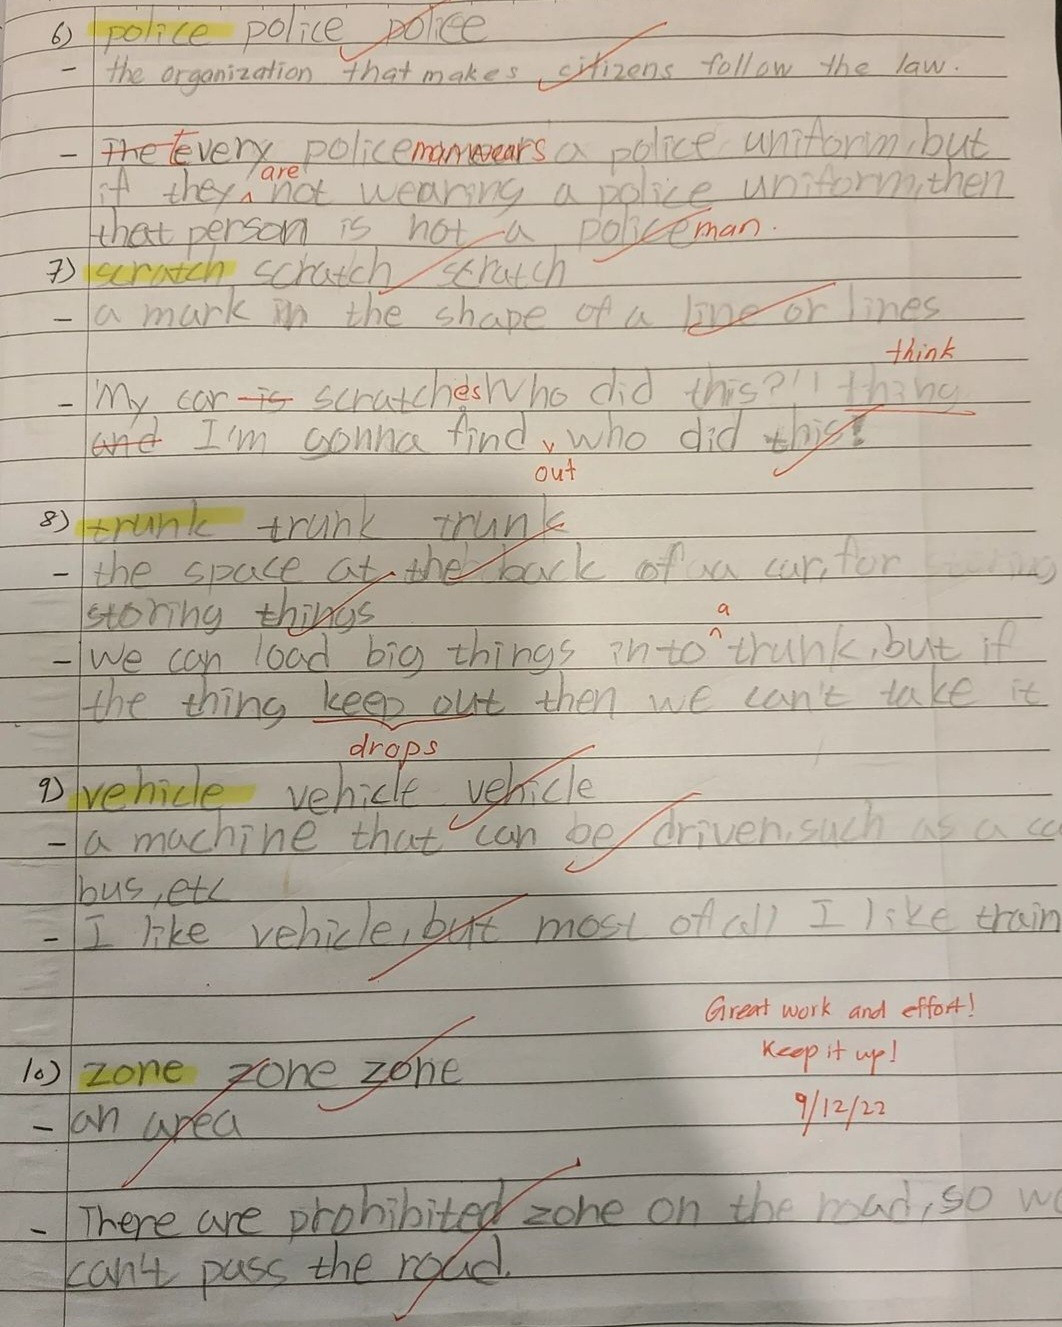 6) police police police
- the organization that makes citizens follow the law.
- The Every policeman wears a police uniform, but
are
if they not wearing a police uniform, then
that person is not a policeman.
7) scratch scratch scratch
- a mark in the shape of a line or lines
think
- My car is scratches Who did this?!! thing
and I'm gonna find who did this!
out
8) trunk trunk trunk
- the space at the back of a car, for
storing things
a
- We can load big things into trunk, but if
the thing keep out then we can't take it
drops
9) vehicle vehicle vehicle
- a machine that can be driven, such as a ca
bus, etc
- I like vehicle, but most of all I like train
Great work and effort!
Keep it up!
9/12/22
10) zone zone zone
- an area
- There are prohibited zone on the road, so we
can't pass the road.